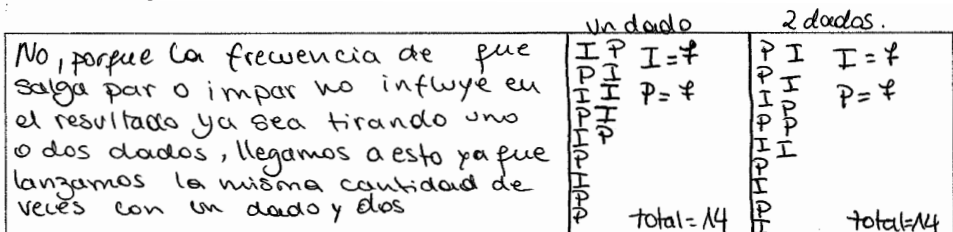 un dado
2 dados.
No, porque la frecuencia de que
salga par o impar no influye en
el resultado ya sea tirando uno
o dos dados, llegamos a esto ya que
lanzamos la misma cantidad de
veces con un dado y dos
I P I=7
P I P=7
I I
P I
I P
P
I
P
P
total=14
P I I=7
P I P=7
I P
P P
I I
P
I
P
I
total=14